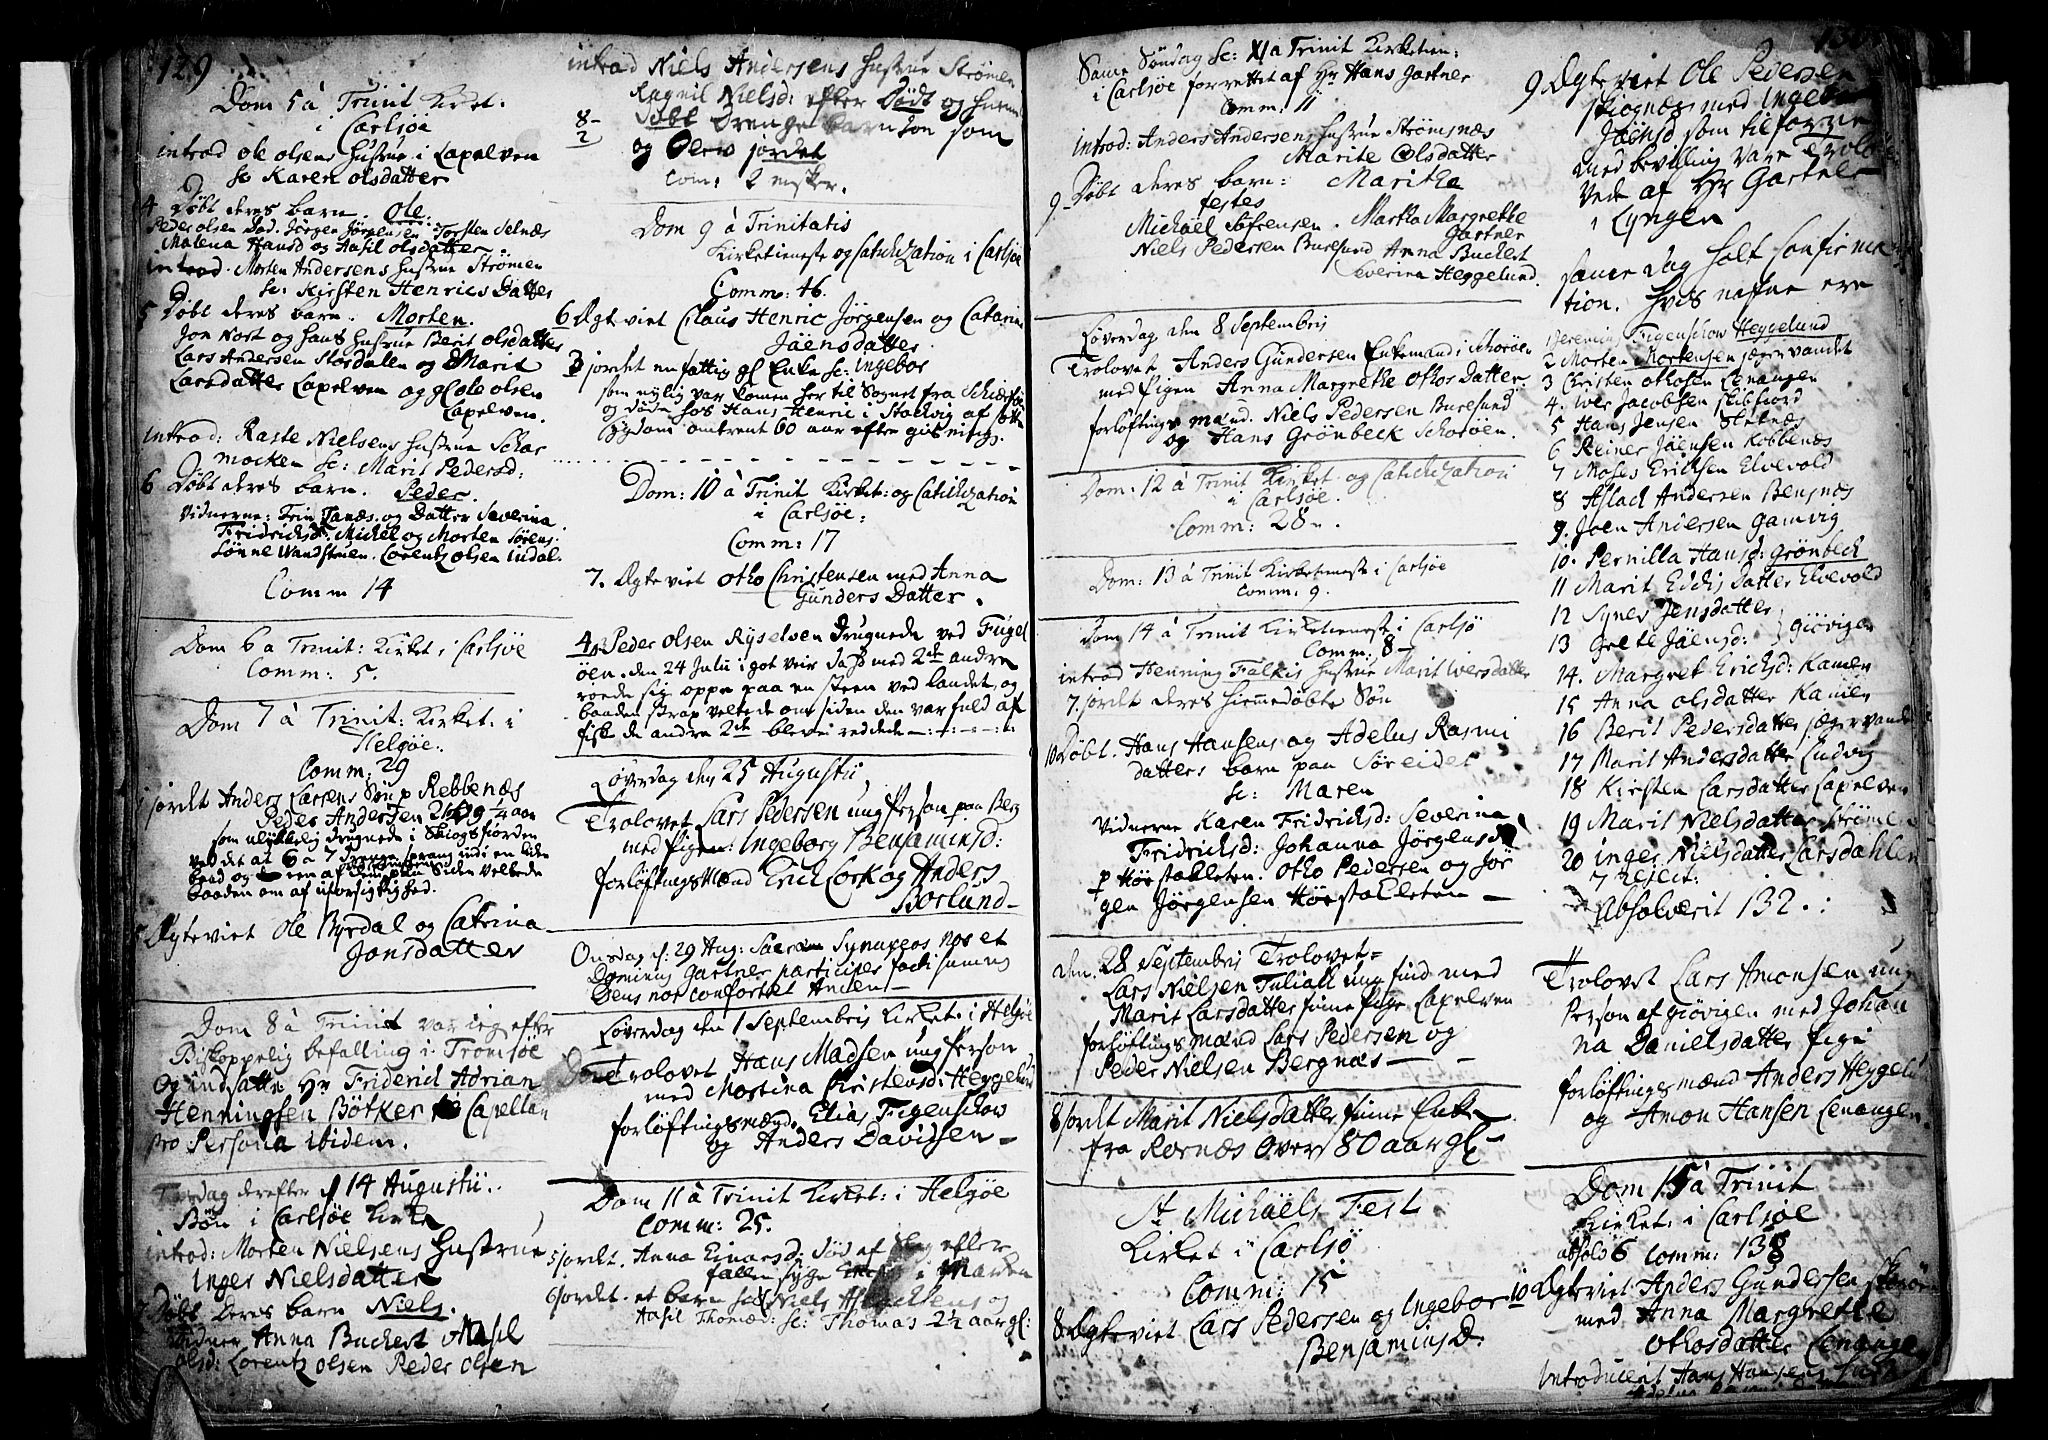 129
Dom 5 à Trinit Kirket:
i Carlsøe
introd ole olsens Hustrue i Capelven
sc Karen olsdatter
4 Døbt deres barn. Ole.
Peder olsen Jørgen Jørgensen Torsten Selnæs
Malena Hansd og Aasil olsdatter.
introd. Morten Andersens Hustrue Strømen
sc: Kirsten Henrics Datter
5 Døbt deres barn. Morten.
Jon Nort og hans hustrue Berit olsdatter
Lars Andersen Stordalen og Marit
Larsdatter Capelven og gl ole olsen
Capelven.
introd: Raste Nielsens Hustrue Schar
mocken sc: Marit Pedersd:
6 Døbt deres barn. Peder.
Vidnerne: Datter Severina
Fridrichsd. Michel og Morten Sørens.
Sønne Vandstuen. Lorentz olsen indal.
Comm 14
Dom 6 a Trinit: Kirket i Carlsøe
Comm: 5.
Dom 7 à Trinit: Kirket: i
Helgøe.
Comm: 29
jordet Anders Larsens Søn p Rebbenæs
Peder Andersen 9 1/4 aar
som ulykkelig drugnede i Skogsfiorden
ved det at 6 a 7 sprang ind i en liden
baad og een af dem siden veltede
baaden om af uforsigtighed.
5 Ægteviet Ole Byrdal og Catrina
Jonsdatter
Dom 8 à Trinit var ieg efter
Biskoppelig befalling i Tromsøe
Og indsatte Hr Friderich Adrian
Henningsen Bötker Capellan
pro Persona ibidem.
Tirsdag derefter d 14 Augustii.
Bøn i Carlsøe Kirke
introd: Morten Nielsens Hustrue
Inger Nielsdatter
7 Døbt deres barn Niels.
Vidner Anna Buchert Aasil
olsd: Lorentz olsen Peder olsen
introd Niels Andersens Hustrue Strømen
Ragnil Nielsd: efter Dødt og hiemme
8- Døbt drenge barn som
2 og blev jordet
Com: 2 msker.
Dom 9 à Trinitatis
Kirketieneste og Catichization i Carlsøe
Comm: 16.
6 Ægteviet Claus Henric Jørgensen og Catarina
Jäensdatter
3 jordet en fattig gl Enke sc: Ingebor
som nylig var komen her til Sognet fra Schiervøe
og døde hos Hans Henric i Stachvig af
sygdom omtrent 60 aar efter gisning.
Dom: 10 à Trinit Kirket: og Catichization
i Carlsøe:
Comm: 17
7. Ægteviet Otho Christensen med Anna
Gunders Datter.
4 Peder olsen Ryselven drugnede ved Fugel
öen. den 24 Julii i got veir da med 2de andre
roede sig oppe paa en steen ved landet, og
baaden strax veltede om siden den var fuld af
fiske de andre 2de bleve reddede
Løverdag den 25 Augustii
Trolovet Lars Pedersen ung Person paa Berg
med Pigen: Ingeborg Benjaminsd:
forløftings Mænd Erich Lork og Anders
Borlund
Onsdag d: 29 Aug: Sacram Synaxeos nos et
Dominus Gartner participes facti sumus
Deus nos confortet Amen
Løverdag den 1 Septembris Kirket: i Helgøe
Trolovet Hans Madsen ung Person
med Martina Christensd: Heggelund
forløftingsmænd. Elias Figenschow
og Anders Davidsen
Dom 11 à Trinit Kirket: i Helgøe
Comm: 25.
5 jordet. Anna Einarsd: død af Slag efter
fallen syge
6 jordet et barn sc: Niels Aslachsens og
Aasil Thomæd: sc: Thomas 2 1/2 aar gl:
130
Same Søndag sc: XI à Trinit Kirketien:
i Carlsøe forrettet af Hr Hans Gartner
Comm: 11
introd: Anders Andersens Hustrue Strømsnæs
Marite Olsdatter
9 Døbt deres barn: Maritha
testes
Michael Sørensen. Martha Margrethe
Gartner
Niels Pedersen Buresund Anna Buchert
Severina Heggelund.
Løverdag den 8 Septembris
Trolovet Anders Gundersen Enkemand i Schorøen
med Pigen Anna Margrethe Othos Datter.
forløftings mænd. Niels Pedersen Buresund
og Hans Grönbeck Schorøen.
Dom: 12 à Trinit Kirket og Catichization
i Carlsøe.
Comm: 28
Dom: 13 à Trinit Kirketieneste i Carlsøe
Comm: 9.
Dom 14 à Trinit Kirketieneste i Carlsö
Comm: 8
introd Henning Falkis Hustrue Marit Iversdatter
7. jordt deres hiemmedøbte Søn
10 Døbt. Hans Hansens og Adelus Rasmi
datters barn paa Søreidet
sc: Maren
Vidnerne Karen Fridrichsd: Severina
Fridrichsd: Johanna Jørgensd
p Høistakleten. Otho Pedersen og Jør
gen Jørgensen Høistakleten
den 28 Septembris Trolovet
Lars Nielsen Tuliall ung find med
Marit Larsdatter finne pige Capelven
forløftings mænd Lars Pedersen og
Peder Nielsen Bergnäs
8 jordet Marit Nielsdatter finne Enke
fra Rørnæs over 80 aar gl
St Michäels Fest
Kirket i Carlsö
Comm: 15
8 Ægteviet Lars Pedersen og Ingebor
Benjamins D.
9 Ægteviet Ole Pedersen
Skiognæs med Ingebor
Jäensd som tilforne
med bevilling vare Trolovede
Ved af Hr Gartner
i Lyngen
same dag holt Confirma
tion. hvis nafne ere
1 Jeremias Figenschow Heggelund
2 Morten Mortensen Jægervandet
3 Christen Othosen Lenangen
4. Iver Jacobsen skibfiord
5 Hans Jensen Sletnæs
6 Reiner Jäensen Kobbenæs
7 Moses Erichsen Elvevold
8 Aslach Andersen Bensnæs
9. Joen Andersen Gamvig
10. Pernilla Hansd: Grönbeck
11 Marit Erichs Datter Elvevold
12 Synev Jensdatter
13 Grete Jäensd: Giövigen
14. Margret Erichsd: Kamen
15 Anna olsdatter Kamen
16 Berit Pedersdatter Jægervande
17 Marit Andersdatter Ludvig
18 Kirsten Larsdatter Capelven
19 Marit Nielsdatter Strömen
20 Inger Nielsdatter Larsdahlen
7 Reject:
Absolverit 132.
Trolovet Lars Amonsen ung
Person af Giövigen med Johan
na Danielsdatter Pige
forløftings mænd Anders Heggelund
og Amon Hansen Lenangen.
Dom 15 à Trinit
Kirket: i Carlsøe
absolv 6 comm: 138
10 Ægteviet Anders Gundersen Skorøen
med Anna Margrethe
Othosdatter Lenangen
Introducerit Hans Hansens Hustr